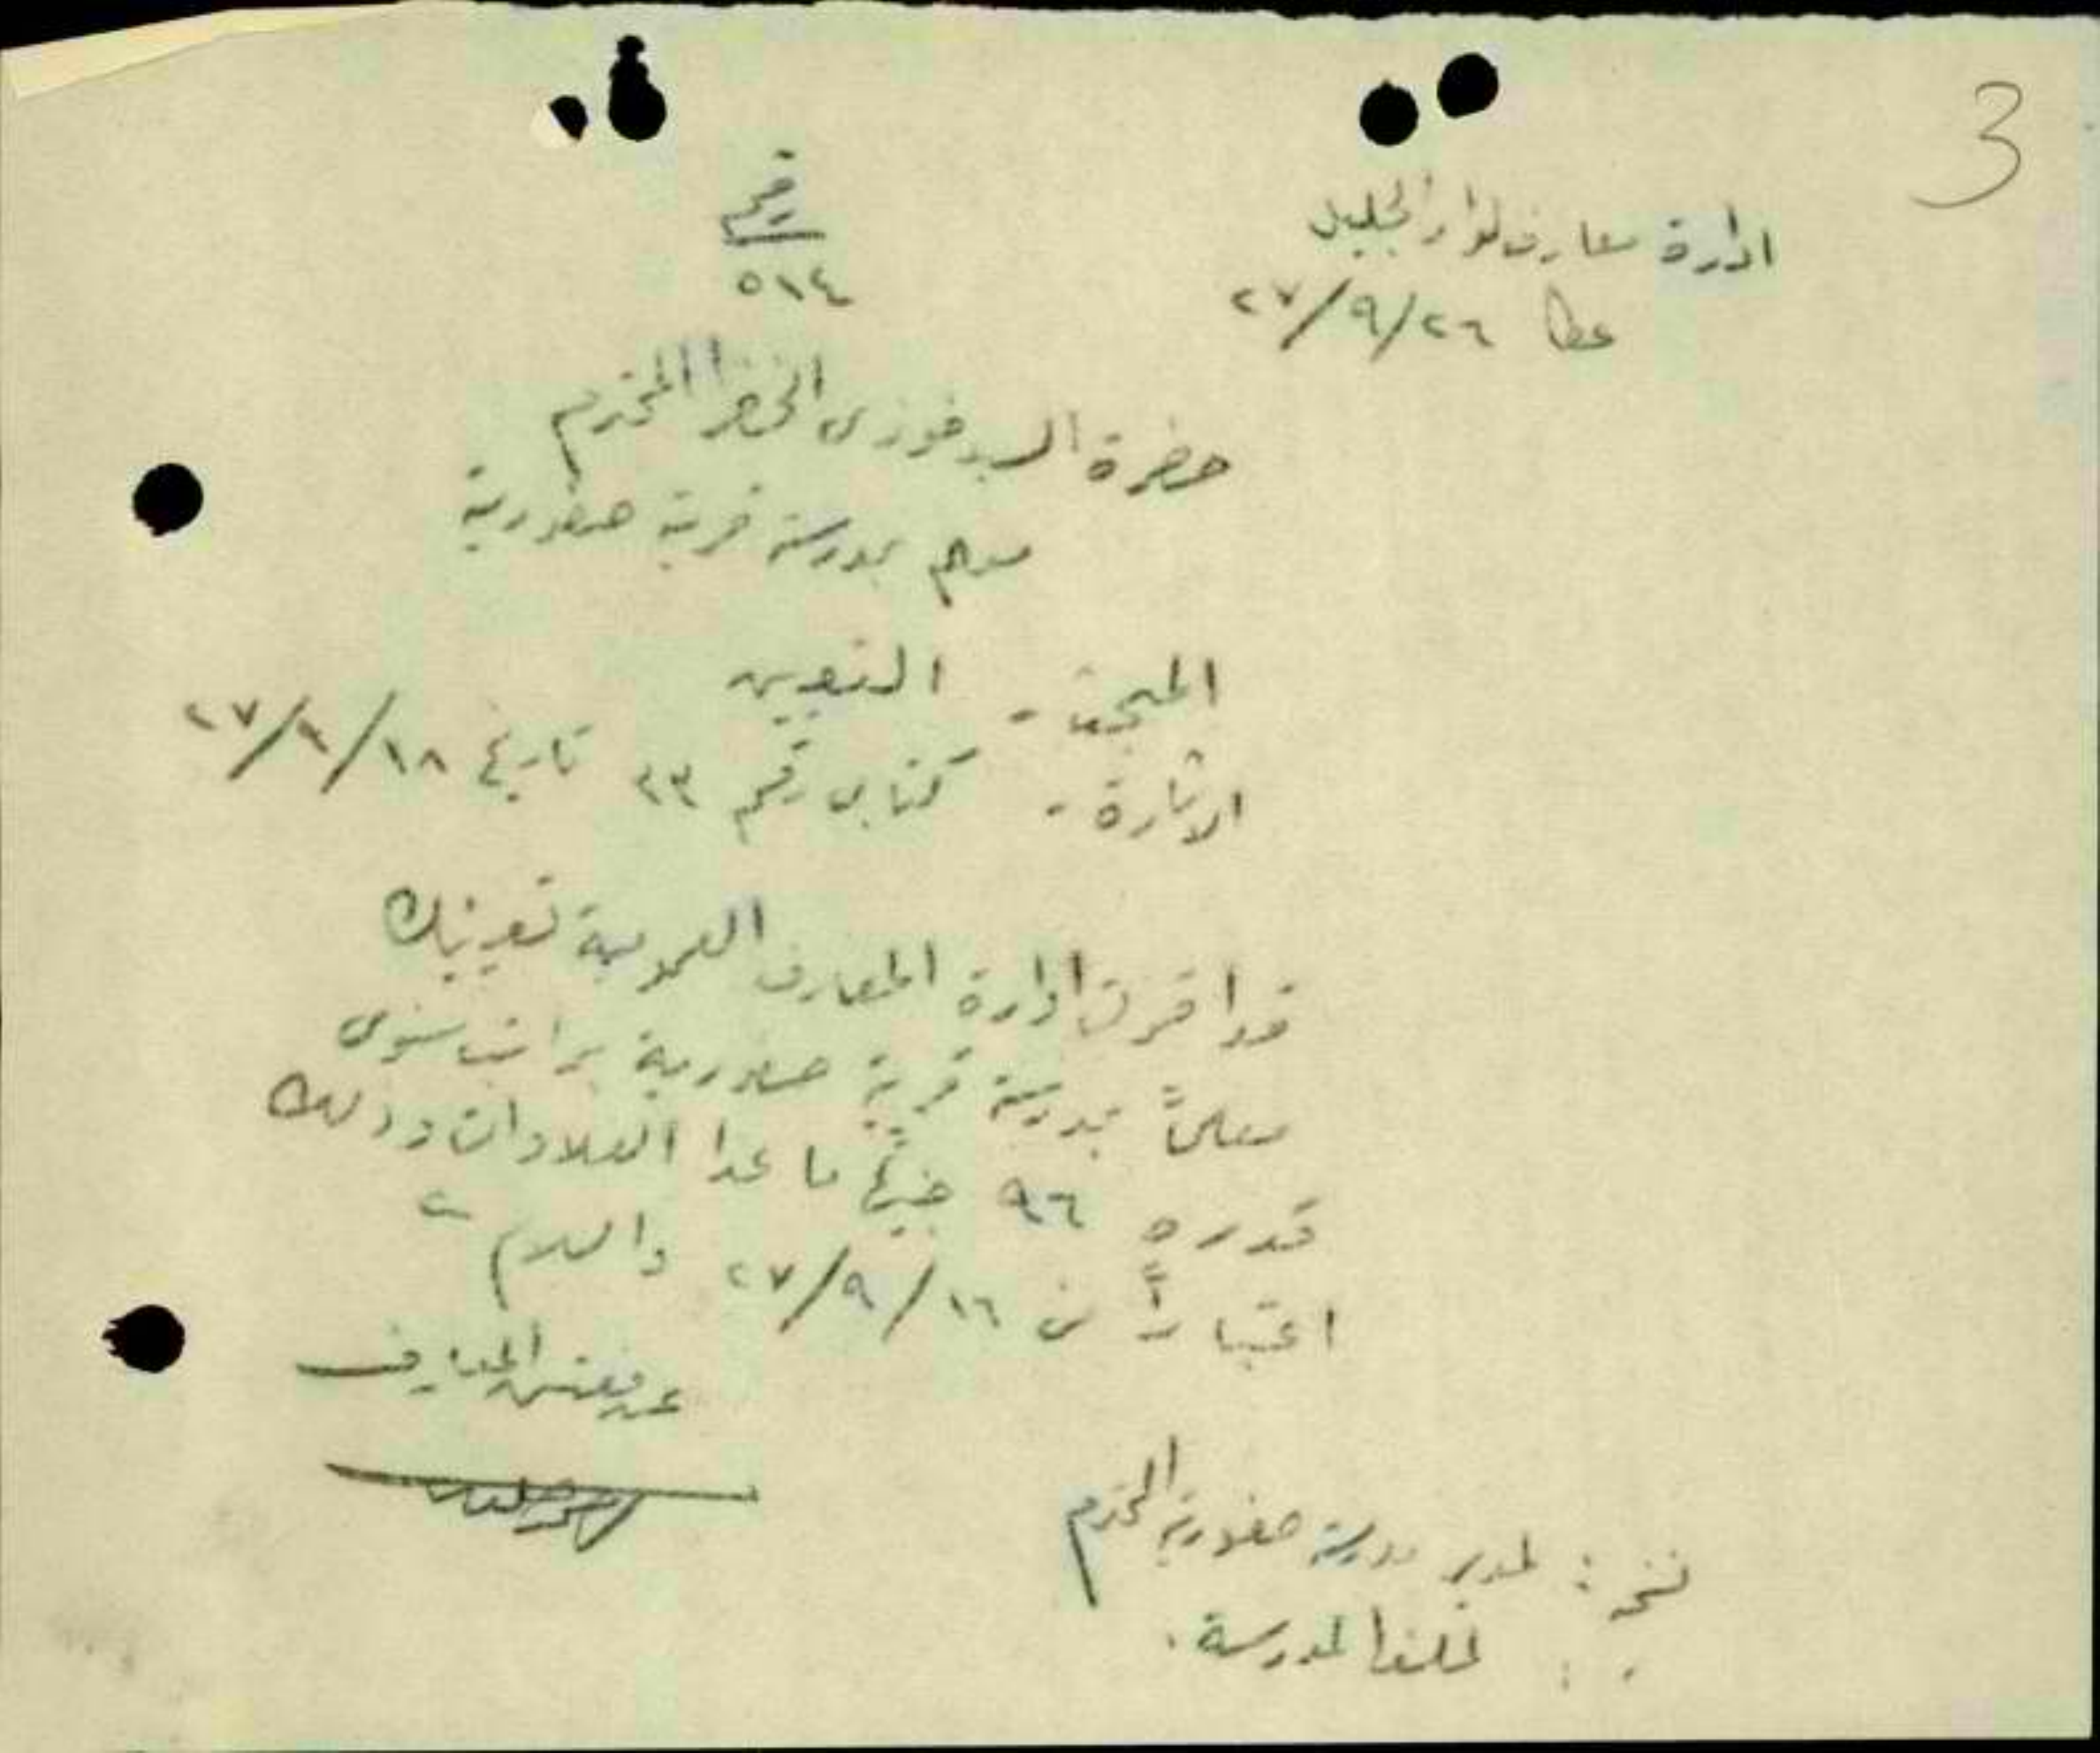 3
ادارة معارف لواء الجليل
عكا ٢٦/٩/٢٧
رقم
٥١٤
حضرة السيد فوزى الخضرا المحترم
معلم بمدرسة قرية صفورية
المبحث - التعيين
الاشارة - كتابى رقم ٤٣ تاريخ ١٨/٩/٢٧
قد اقرت ادارة المعارف العمومية تعيينك
معلماً بمدرسة قرية صفورية براتب سنوى
قدره ٩٦ جنيهاً ما عدا العلاوات وذلك
اعتباراً من ١٦/٩/٢٧ والسلام
عن مفتش المعارف
نسخة : لمدير مدرسة صفورية المحترم
: لملف المدرسة .